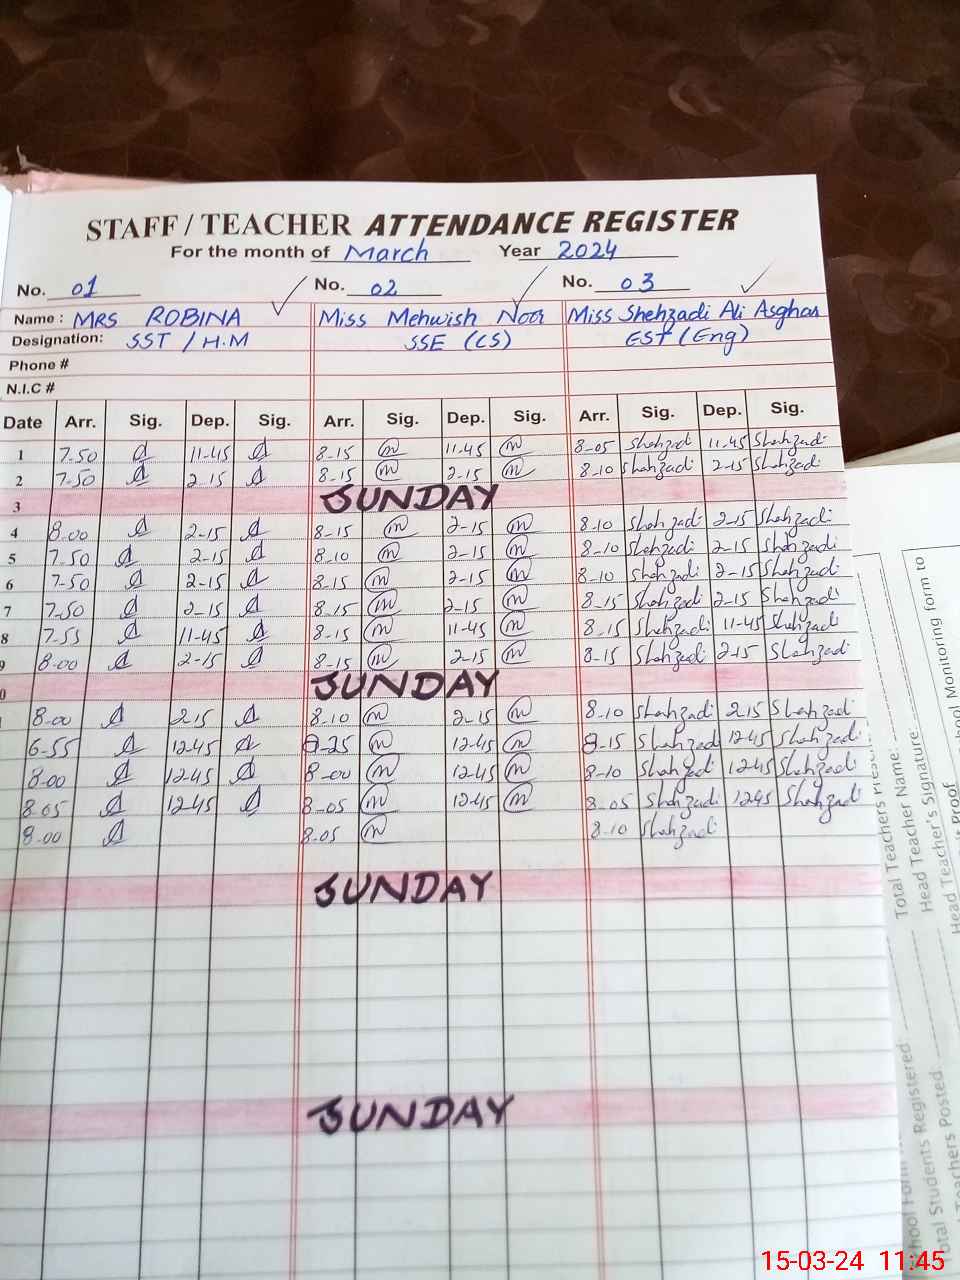 STAFF / TEACHER ATTENDANCE REGISTER
For the month of March Year 2024
No. 01 No. 02 No. 03
Name : MRS ROBINA Miss Mehwish Noor Miss Shehzadi Ali Asghar
Designation: SST / H.M SSE (CS) EST (Eng)
Phone #
N.I.C #
Date Arr. Sig. Dep. Sig. Arr. Sig. Dep. Sig. Arr. Sig. Dep. Sig.
1 7-50 11-45 8-15 m 11-45 m 8-05 Shahzadi 11-45 Shahzadi
2 7-50 2-15 8-15 m 2-15 m 8-10 Shahzadi 2-15 Shahzadi
3 SUNDAY
4 8-00 2-15 8-15 m 2-15 m 8-10 Shahzadi 2-15 Shahzadi
5 7-50 2-15 8-10 m 2-15 m 8-10 Shahzadi 2-15 Shahzadi
6 7-50 2-15 8-15 m 2-15 m 8-10 Shahzadi 2-15 Shahzadi
7 7-50 2-15 8-15 m 2-15 m 8-15 Shahzadi 2-15 Shahzadi
8 7-55 11-45 8-15 m 11-45 m 8-15 Shahzadi 11-45 Shahzadi
9 8-00 2-15 8-15 m 2-15 m 8-15 Shahzadi 2-15 Shahzadi
0 SUNDAY
8-00 2-15 8-10 m 2-15 m 8-10 Shahzadi 2-15 Shahzadi
6-55 12-45 8-25 m 12-45 m 8-15 Shahzadi 12-45 Shahzadi
8-00 12-45 8-00 m 12-45 m 8-10 Shahzadi 12-45 Shahzadi
8-05 12-45 8-05 m 12-45 m 8-05 Shahzadi 12-45 Shahzadi
8-00 8-05 m 8-10 Shahzadi
SUNDAY
SUNDAY
hool Monitoring form to
Total Teachers
Head Teacher Name:
Head Teacher's Signature:
Proof
Head Teacher's
hool Form
otal Students Registered:
Teachers Posted:
15-03-24 11:45